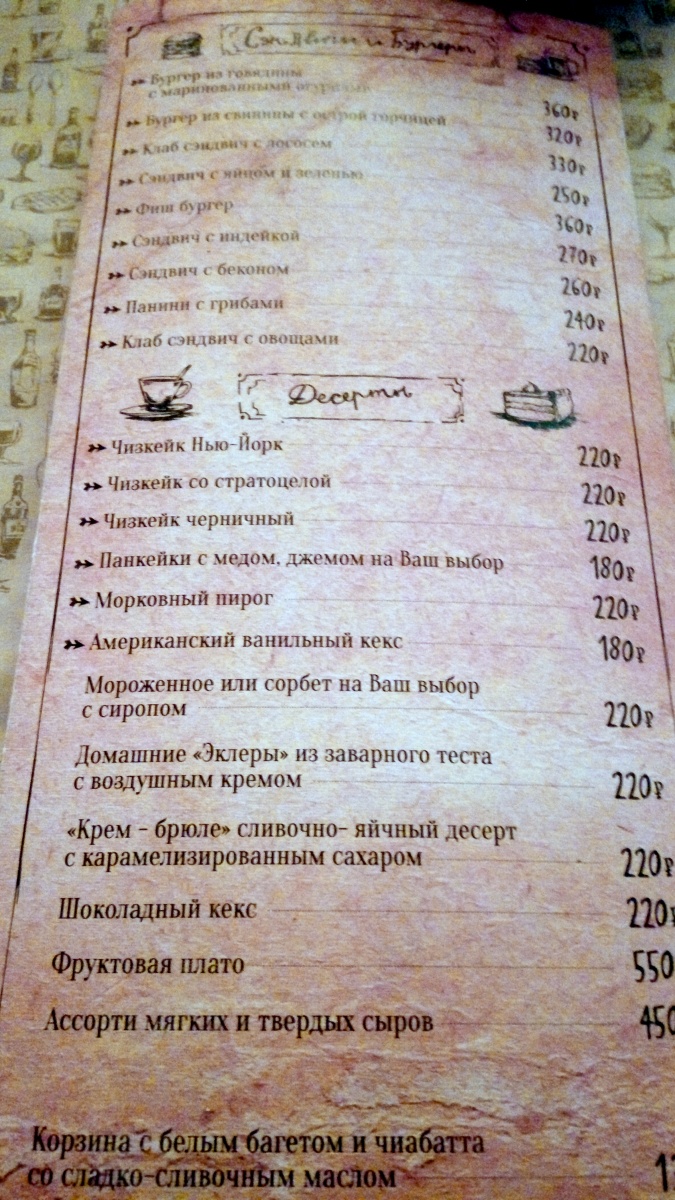 Сэндвичи и Бургеры
Бургер из говядины
с маринованными огурцами 360₽
Бургер из свинины с острой горчицей 320₽
Клаб сэндвич с лососем 330₽
Сэндвич с яйцом и зеленью 250₽
Фиш бургер 360₽
Сэндвич с индейкой 270₽
Сэндвич с беконом 260₽
Панини с грибами 240₽
Клаб сэндвич с овощами 220₽
Десерты
Чизкейк Нью-Йорк 220₽
Чизкейк со стратоцелой 220₽
Чизкейк черничный 220₽
Панкейки с медом, джемом на Ваш выбор 180₽
Морковный пирог 220₽
Американский ванильный кекс 180₽
Мороженное или сорбет на Ваш выбор
с сиропом 220₽
Домашние «Эклеры» из заварного теста
с воздушным кремом 220₽
«Крем - брюле» сливочно- яичный десерт
с карамелизированным сахаром 220₽
Шоколадный кекс 220₽
Фруктовая плато 550
Ассорти мягких и твердых сыров 450
Корзина с белым багетом и чиабатта
со сладко-сливочным маслом